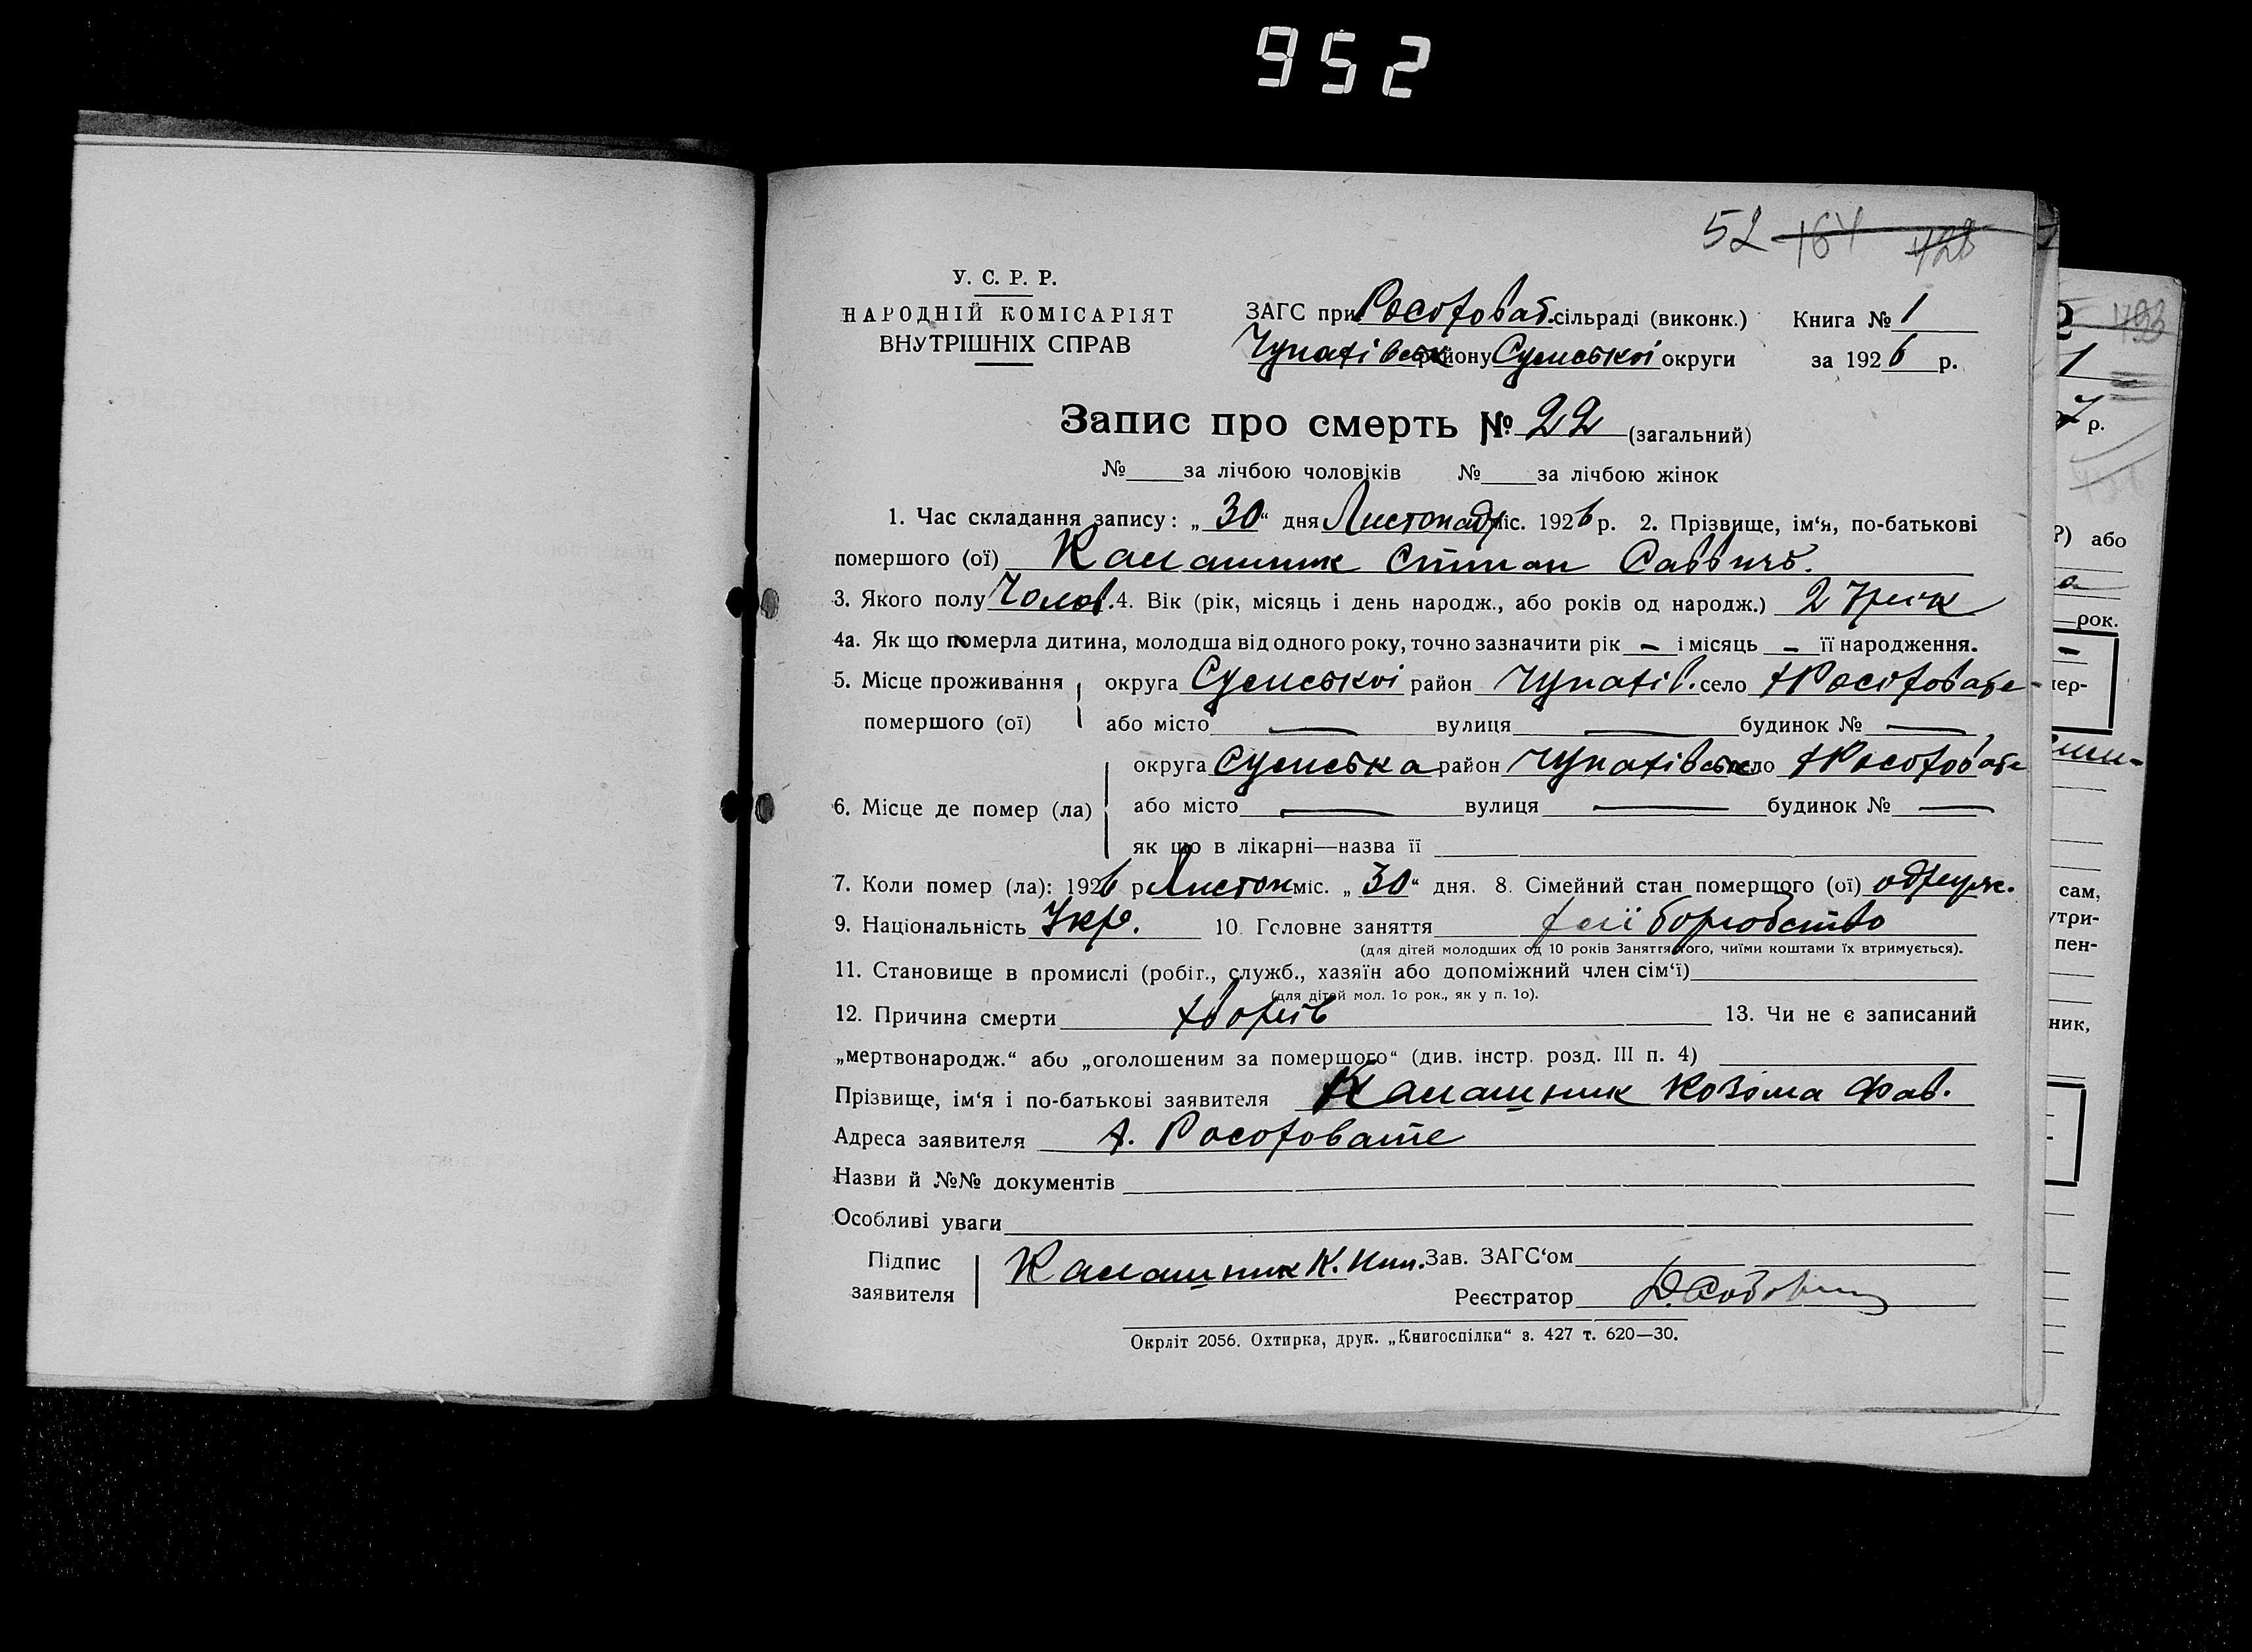 952
52 164 428
У. С. Р. Р.
НАРОДНІЙ КОМІСАРІЯТ
ВНУТРІШНІХ СПРАВ
ЗАГС при Росотоват. сільраді (виконк.) Книга № 1
Чупахівськ району Сумськоі округи за 1926 р.
Запис про смерть № 22 (загальний)
№ за лічбою чоловіків № за лічбою жінок
1. Час складання запису: „30“ дня Листопаду міс. 1926 р. 2. Прізвище, ім‘я, по-батькові
помершого (ої) Калашник Степан Саввич.
3. Якого полу Чолов. 4. Вік (рік, місяць і день народж., або років од народж.) 2
4а. Як що померла дитина, молодша від одного року, точно зазначити рік – і місяць – її народження.
5. Місце проживання округа Сумськоі район Чупахів. село
помершого (ої) або місто — вулиця — будинок № —
округа Сумська район Чупахівськ село
6. Місце де помер (ла) або місто — вулиця — будинок № —
як що в лікарні—назва її
7. Коли помер (ла): 1926 р. Листоп міс. „30“ дня. 8. Сімейний стан померщого (ої) одруж.
9. Національність Укр. 10. Головне заняття хліборобство
(для дітей молодших од 10 років Заняття того, чиїми коштами їх втримується).
11. Становище в промислі (робіг., служб., хазяїн або допоміжний член сім‘ї)
(для дітей мол. 1о рок., як у п. 1о).
12. Причина смерти 13. Чи не є записаний
„мертвонародж.“ або „оголошеним за помершого“ (див. інстр. розд. III п. 4)
Прізвище, ім‘я і по-батькові заявителя Калашник Козьма Фав.
Адреса заявителя х. Росотовате
Назви й №№ документів
Особливі уваги
Підпис Калашник К. Зав. ЗАГС‘ом
заявителя Реєстратор
Окрліт 2056. Охтирка, друк. „Книгоспілки“ з. 427 т. 620—30.